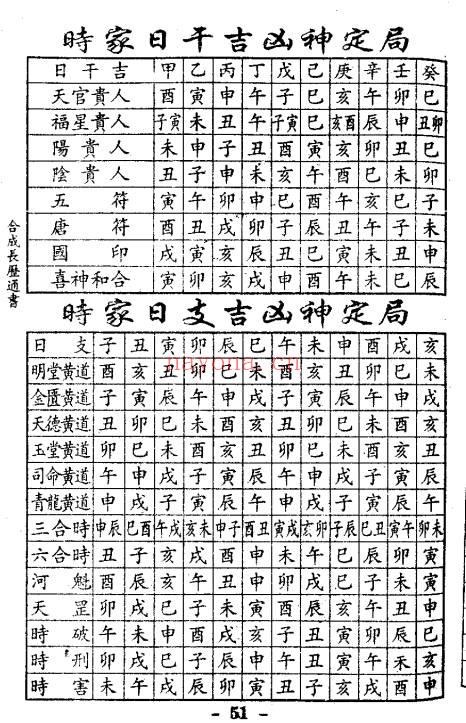 時家日干吉凶神定局
日干吉 甲 乙 丙 丁 戊 己 庚 辛 壬 癸
天官貴人 酉 寅 申 午 子 巳 亥 午 卯 巳
福星貴人 子寅 未 丑 午 子寅 巳 亥酉 辰 申 丑卯
陽貴人 未 申 子 丑 酉 寅 亥 卯 丑 巳
陰貴人 丑 子 申 未 亥 午 酉 巳 未 卯
五符 寅 午 卯 申 巳 酉 午 亥 巳 子
唐符 酉 丑 戌 卯 子 辰 丑 午 子 未
國印 戌 寅 亥 辰 丑 巳 寅 未 丑 申
喜神和合 寅 卯 亥 戌 申 酉 午 未 巳 辰
合成長歷通書
時家日支吉凶神定局
日支 子 丑 寅 卯 辰 巳 午 未 申 酉 戌 亥
nayona.cn
明堂黄道 酉 亥 丑 卯 巳 未 酉 亥 丑 卯 巳 未
金匱黄道 子 寅 辰 午 申 戌 子 寅 辰 午 申 戌
天德黄道 丑 卯 巳 未 酉 亥 丑 卯 巳 未 酉 亥
玉堂黄道 卯 巳 未 酉 亥 丑 卯 巳 未 酉 亥 丑
司命黄道 午 申 戌 子 寅 辰 午 申 戌 子 寅 辰
青龍黄道 申 戌 子 寅 辰 午 申 戌 子 寅 辰 午
三合時 申辰 巳酉 午戌 亥未 申子 酉丑 寅戌 亥卯 子辰 巳丑 寅午 卯未
六合時 丑 子 亥 戌 酉 申 未 午 巳 辰 卯 寅
河魁 酉 辰 亥 午 丑 申 卯 戌 巳 子 未 寅
天罡 卯 戌 巳 子 未 寅 酉 辰 亥 午 丑 申
時破 午 未 申 酉 戌 亥 子 丑 寅 卯 辰 巳
時刑 卯 戌 巳 子 辰 申 午 丑 寅 酉 未 亥
時害 未 午 戌 辰 卯 寅 丑 子 亥 戌 酉 申
- 51 -